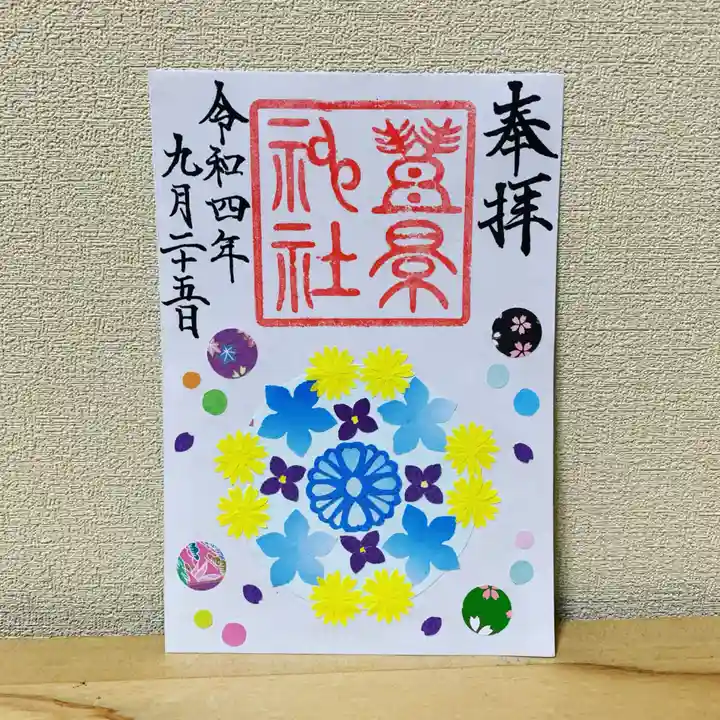 奉拝
豊景
神社
令和四年
九月二十五日